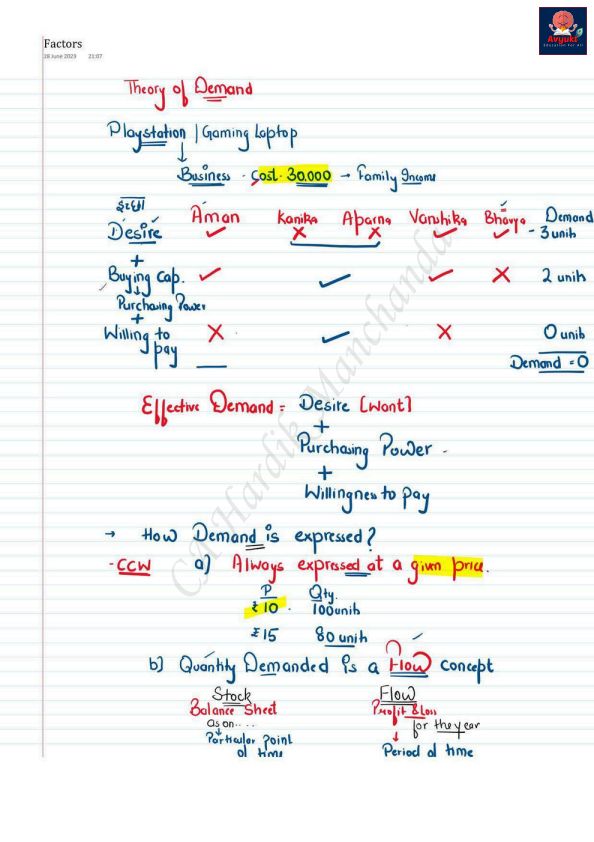 Avyukt
Education For All
Factors
28 June 2023 21:07
Theory of Demand
Playstation / Gaming Laptop
Business - Cost - 30,000 → Family Income
इच्छा
Aman Kanika Aparna Vanshika Bhavya Demand
Desire ✓ ✗ ✗ ✓ ✓ - 3 units
+
Buying Cap. ✓ ✓ ✓ ✗ 2 units
Purchasing Power
+
Willing to ✗ ✓ ✗ 0 units
pay
Demand = 0
Effective Demand = Desire [Want]
+
Purchasing Power -
+
Willingness to pay
→ How Demand is expressed?
- CCW a) Always expressed at a given price.
P Qty.
₹ 10 100 units
₹ 15 80 units
b) Quantity Demanded is a Flow concept
Stock Flow
Balance Sheet Profit & Loss
as on.... for the year
Particular Point Period of time
of time
CA Hardik Manchanda